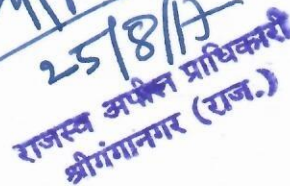 25/8/17
राजस्व अपील प्राधिकारी
श्रीगंगानगर (राज.)